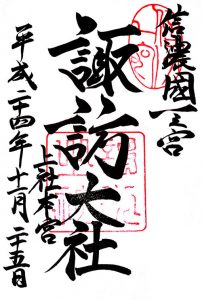 信濃國一之宮
諏訪大社
上社本宮
平成二十四年十一月二十五日